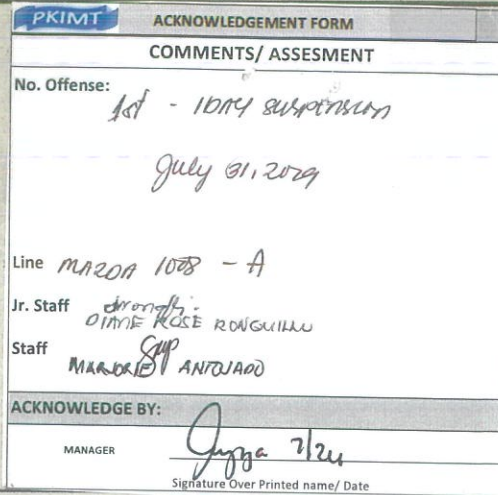 PKIMT ACKNOWLEDGEMENT FORM
COMMENTS/ ASSESMENT
No. Offense:
1st - 1DAY SUSPENSION
July 31, 2029
Line MAZDA 1008 - A
Jr. Staff
DIANE ROSE RONQUILLO
Staff
MARJORIE ANTOJADO
ACKNOWLEDGE BY:
MANAGER 7/24
Signature Over Printed name/ Date